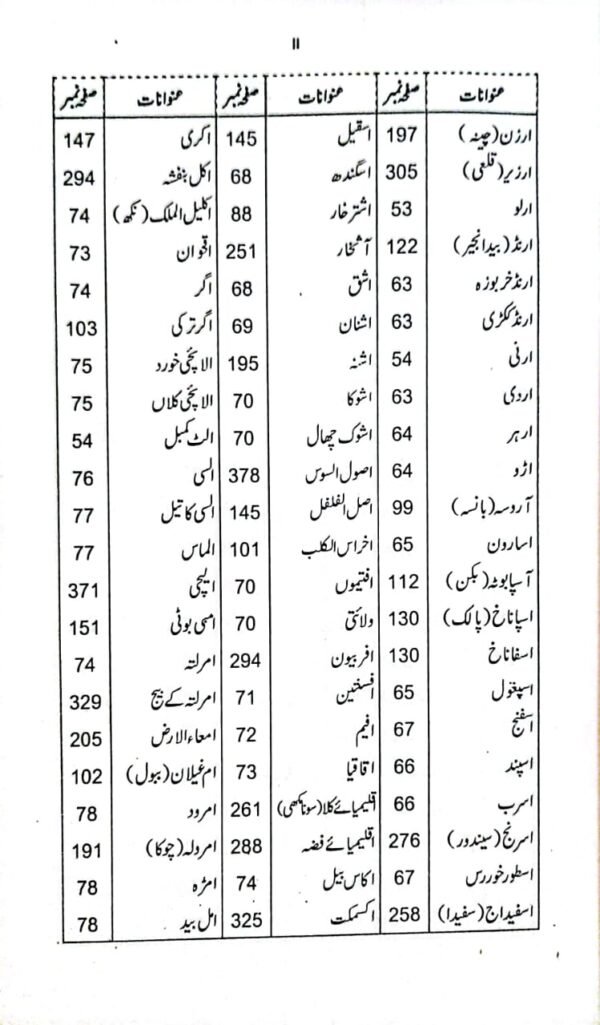 ۱۱
عنوانات صفحہ نمبر عنوانات صفحہ نمبر عنوانات صفحہ نمبر
ارزن (چینہ) 197 اسقیل 145 اکری 147
ارزیر (قلعی) 305 اسگندھ 68 اکل بنفشہ 294
ارلو 53 اشترخار 88 اکلیل الملک (نکھ) 74
ارنڈ (بیدانجیر) 122 آشخار 251 اقحوان 73
ارنڈ خربوزہ 63 اشق 68 اگر 74
ارنڈ ککڑی 63 اشنان 69 اگر ترکی 103
ارنی 54 اشنہ 195 الائچی خورد 75
اروی 63 اشوکا 70 الائچی کلاں 75
ارہر 64 اشوک چھال 70 الٹ کمبل 54
اڑو 64 اصول السوس 378 السی 76
آروسہ (بانسہ) 99 اصل الفلفل 145 السی کا تیل 77
اسارون 65 اخراس الکلب 101 الماس 77
آسپا بوٹہ (بکن) 112 افتیموں 70 الیچی 371
اسپاناخ (پالک) 130 ولائتی 70 امسی بوٹی 151
اسفاناخ 130 افربیون 294 امرلتہ 74
اسپغول 65 افسنتین 71 امرلتہ کے بیج 329
اسفنج 67 افیم 72 امعاء الارض 205
اسپند 66 اقاقیا 73 ام غیلان (ببول) 102
اسرب 66 اقلیمیائے کلا (سونا مکھی) 261 امرود 78
اسرنج (سیندور) 276 اقلیمیائے فضہ 288 امرولہ (چوکا) 191
اسطور خوررس 67 اکاس بیل 74 امڑہ 78
اسفیداج (سفیدا) 258 اکسمکت 325 امل بید 78